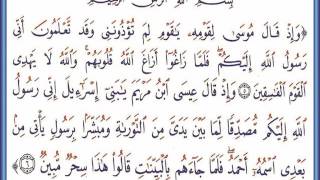 بسم الله الرحمن الرحيم
﴿وَإِذْ قَالَ مُوسَىٰ لِقَوْمِهِۦ يَـٰقَوْمِ لِمَ تُؤْذُونَنِى وَقَد تَّعْلَمُونَ أَنِّى
رَسُولُ ٱللَّهِ إِلَيْكُمْ ۖ فَلَمَّا زَاغُوٓا۟ أَزَاغَ ٱللَّهُ قُلُوبَهُمْ ۚ وَٱللَّهُ لَا يَهْدِى
ٱلْقَوْمَ ٱلْفَـٰسِقِينَ ۝٥ وَإِذْ قَالَ عِيسَى ٱبْنُ مَرْيَمَ يَـٰبَنِىٓ إِسْرَٰٓءِيلَ إِنِّى رَسُولُ
ٱللَّهِ إِلَيْكُم مُّصَدِّقًا لِّمَا بَيْنَ يَدَىَّ مِنَ ٱلتَّوْرَىٰةِ وَمُبَشِّرًۢا بِرَسُولٍ يَأْتِى مِنۢ
بَعْدِى ٱسْمُهُۥٓ أَحْمَدُ ۖ فَلَمَّا جَآءَهُم بِٱلْبَيِّنَـٰتِ قَالُوا۟ هَـٰذَا سِحْرٌ مُّبِينٌ ۝٦﴾